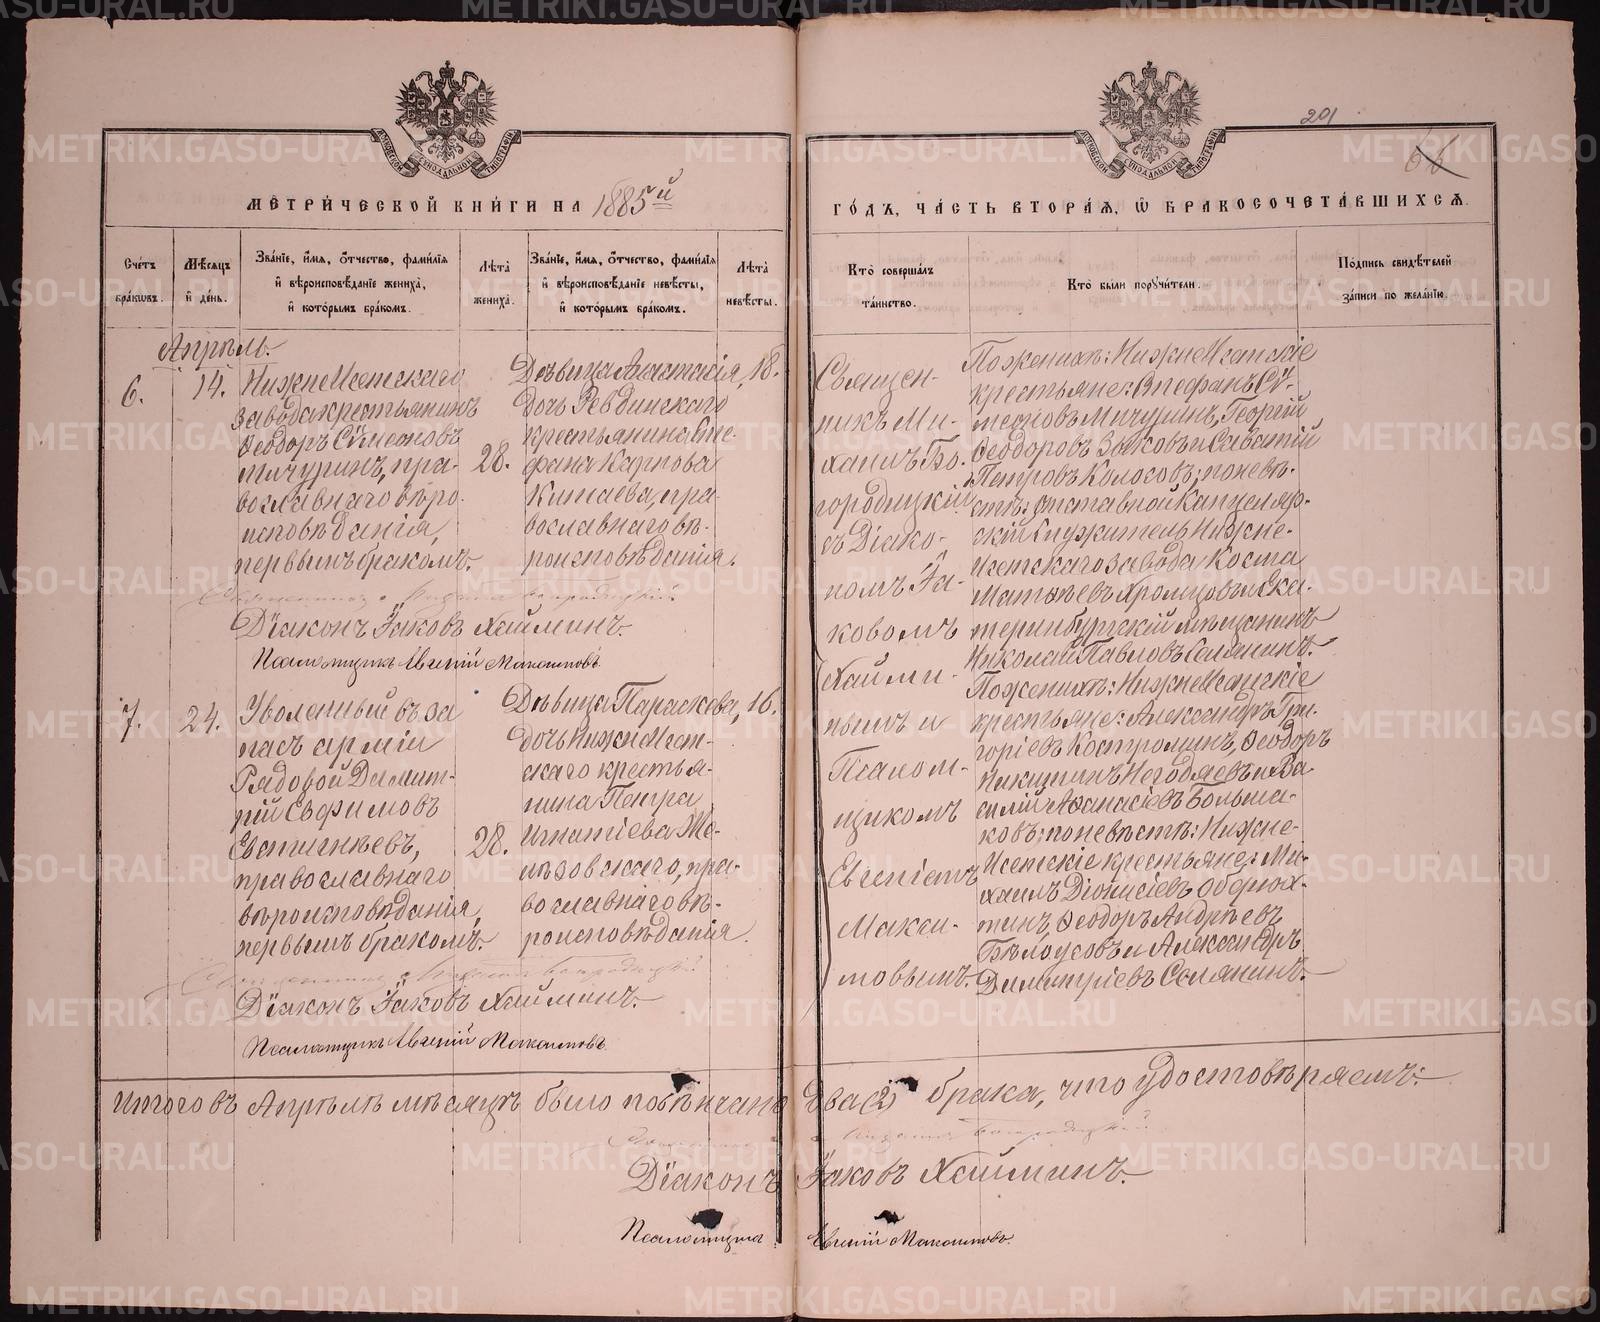 201
МЕТРИ́ЧЕСКОЙ КНИ́ГИ НА 1885й ГО́ДЪ, ЧА́СТЬ ВТОРА́Я, Ѡ БРАКОСОЧЕТА́ВШИХСЯ.
Сче́тъ бра́кѡвъ.
Мѣ́сяцъ и де́нь.
Зва́нїе, и́мя, ѻ́тчество, фами́лїя и вѣроисповѣ́данїе жениха́, и кото́рымъ бра́комъ.
Лѣта̀ жениха̀.
Зва́нїе, и́мя, ѻ́тчество, фами́лїя и вѣроисповѣ́данїе невѣ́сты, и кото́рымъ бра́комъ.
Лѣта̀ невѣ́сты.
Кто̀ соверша́лъ та́инство.
Кто̀ бы́ли порꙋчи́тели.
По́дпись свидѣ́телей за́писи по жела́нїю.
Апрѣль.
6.
14.
НижнеИсетскаго
завода крестьянинъ
Ѳеодоръ Сѵмеоновъ
Мичуринъ, пра-
вославнаго вѣро-
исповѣданія,
первымъ бракомъ.
28.
Дѣвица Анастасія,
дочь Ревдинскаго
крестьянина Сте-
фана Карпова
Китаева, пра-
вославнаго вѣ-
роисповѣданія.
18.
Священ-
никъ Ми-
хаилъ Бо-
городицкій
съ Діако-
номъ Іа-
ковомъ
Хайми-
нымъ и
Псалом-
щикомъ
Евгеніемъ
Макси-
мовымъ.
По женихѣ: НижнеИсетскіе
крестьяне: Стефанъ Сѵ-
меоновъ Мичуринъ, Георгій
Ѳеодоровъ Зыковъ и Саватій
Петровъ Колосовъ; по невѣ-
стѣ: отставной Канцеляр-
скій служитель Нижне-
Исетскаго завода Козма
Матѳѣевъ Хромцовъ и Ека-
теринбургскій мѣщанинъ
Николай Павловъ Селянинъ.
Священникъ Михаилъ Богородицкій
Діаконъ Іаковъ Хайминъ.
Псаломщикъ Евгеній Максимовъ.
7.
24.
Уволенный въ за
пасъ арміи
Рядовой Димит-
рій Евфимовъ
Евстигнѣевъ,
православнаго
вѣроисповѣданія,
первымъ бракомъ.
28.
Дѣвица Параскева,
дочь НижнеИсет-
скаго крестья-
нина Петра
Игнатіева Же-
лѣзовскаго, пра-
вославнаго вѣ-
роисповѣданія.
16.
По женихѣ: НижнеИсетскіе
крестьяне: Александръ Гри-
горіевъ Костроминъ, Ѳеодоръ
Никитинъ Негодяевъ и Ва
силій Аѳанасіевъ Больша-
ковъ; по невѣстѣ: Нижне-
Исетскіе крестьяне: Ми-
хаилъ Діонисіевъ Оберюх-
тинъ, Ѳеодоръ Андрѣевъ
Бѣлоусовъ и Александръ
Димитріевъ Селянинъ.
Священникъ Михаилъ Богородицкій
Діаконъ Іаковъ Хайминъ.
Псаломщикъ Евгеній Максимовъ.
Итого въ Апрѣлѣ мѣсяцѣ было повѣнчано два (2) брака, что удостовѣряемъ:
Священникъ Михаилъ Богородицкій
Діаконъ Іаковъ Хайминъ.
Псаломщикъ Евгеній Максимовъ.
METRIKI.GASO-URAL.RU